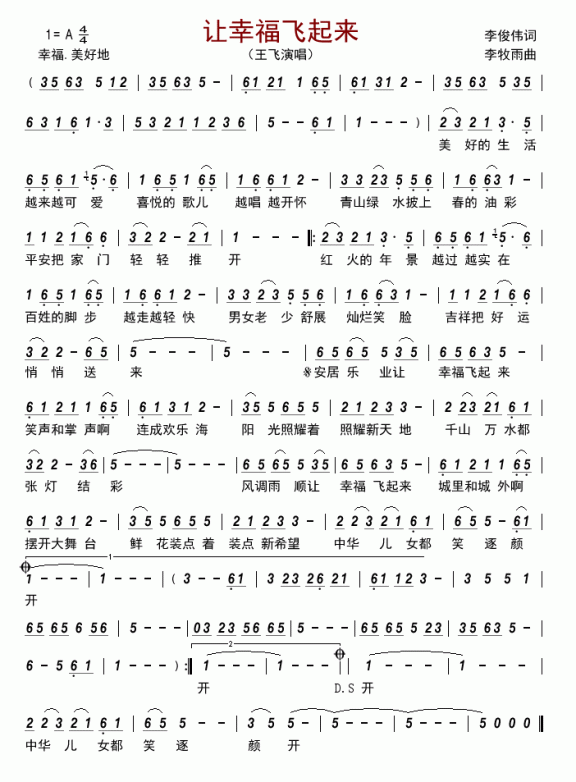 让幸福飞起来
1=A 4/4
李俊伟词
幸福.美好地
（王飞演唱）
李牧雨曲
( 35 63 5 12 | 35 63 5 - | 61 21 1 65 | 61 31 2 - | 5 35 63 5 |
63 1 61 1·3 | 53 21 12 36 | 5 - - 61 | 1 - - - ) | 23 21 3· 5 |
美 好的 生 活
65 61 5· 6 | 1 65 1 65 | 61 61 2 - | 33 23 5 56 | 1 6 63 1 |
越来越可 爱 喜悦的 歌儿 越唱 越开怀 青山绿 水披上 春的 油 彩
11 21 6 6 | 3 2 2 - 21 | 1 - - - ‖: 23 21 3· 5 | 65 61 5· 6 |
平安把 家 门 轻 轻 推 开 红 火的 年 景 越过 越实 在
1 65 1 65 | 61 61 2 - | 33 23 5 56 | 1 6 63 1 | 11 21 6 6 |
百姓的脚 步 越走越轻 快 男女老 少舒展 灿烂笑 脸 吉祥把 好 运
3 2 2 - 65 | 5 - - - | 5 - - - | 65 65 5 35 | 65 63 5 - |
悄 悄 送 来 𝄋安居 乐 业让 幸福飞起 来
61 21 1 65 | 61 31 2 - | 35 5 65 5 | 21 23 3 - | 2 23 21 61 |
笑声和掌 声啊 连成欢乐 海 阳 光照耀着 照耀新天 地 千山 万 水都
32 2 - 36 | 5 - - - | 5 - - - | 65 65 5 35 | 65 63 5 - | 61 21 1 65 |
张 灯 结 彩 风调雨 顺让 幸福 飞起来 城里和城 外啊
61 31 2 - | 35 5 65 5 | 21 23 3 - | 22 23 21 61 | 65 5 - 61 |
摆开大舞 台 鲜 花装点 着 装点 新希望 中华 儿 女都 笑 逐 颜
1
1 - - - | 1 - - - | (3 - - 61 | 3 23 26 21 | 61 12 3 - | 3 5 5 1 |
开
65 65 6 56 | 5 - - - | 03 23 56 65 | 5 - - - | 65 65 5 23 | 35 35 6 5 |
2
6 - 5 61 | 1 - - - ) :‖ 1 - - - | 1 - - - ‖ 1 - - - | 1 - - - |
开 D.S 开
22 23 21 61 | 65 5 - - | 3 5 - - | 5 - - - | 5 - - - | 5 0 0 0 ‖
中华 儿 女都 笑 逐 颜 开